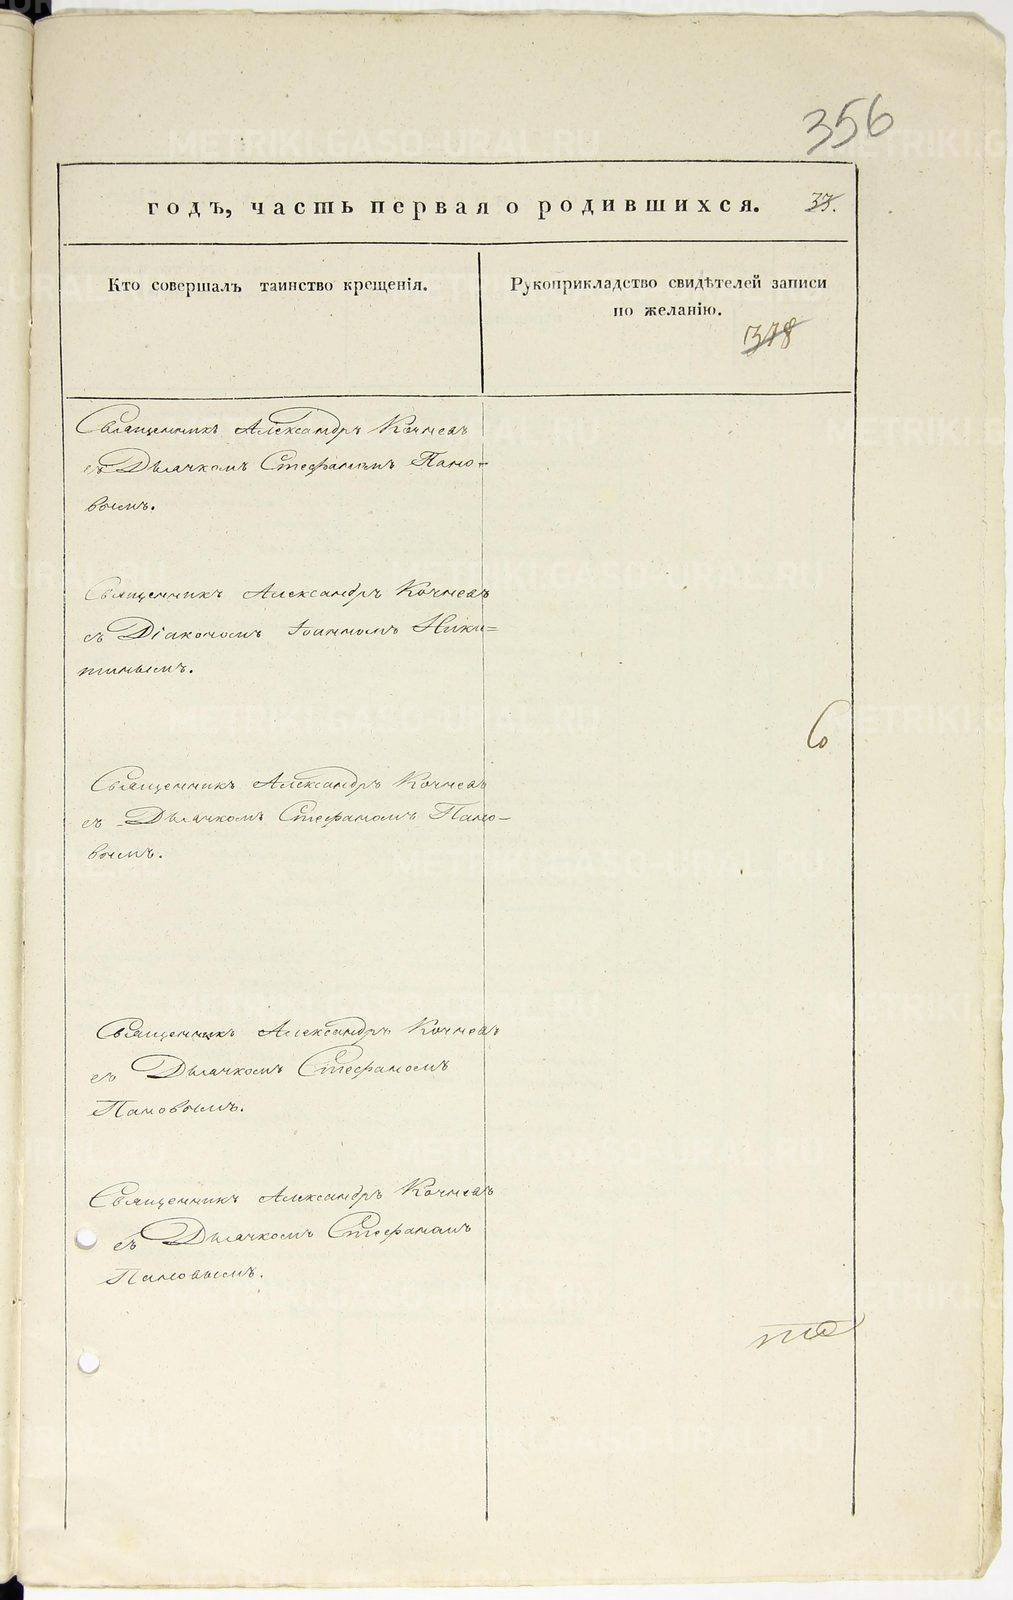 356
годъ, часть первая о родившихся.
37.
Кто совершалъ таинство крещенія.
Рукоприкладство свидѣтелей записи
по желанію.
378
Священникъ Александръ Кочневъ
съ Дьячкомъ Стефаномъ Пано-
вымъ.
Священникъ Александръ Кочневъ
съ Діакономъ Іоанномъ Ники=
тинымъ.
Священникъ Александръ Кочневъ
съ Дьячкомъ Стефаномъ Пано-
вымъ.
Священникъ Александръ Кочневъ
съ Дьячкомъ Стефаномъ
Пановымъ.
Священникъ Александръ Кочневъ
съ Дьячкомъ Стефаномъ
Пановымъ.
METRIKI.GASO-URAL.RU